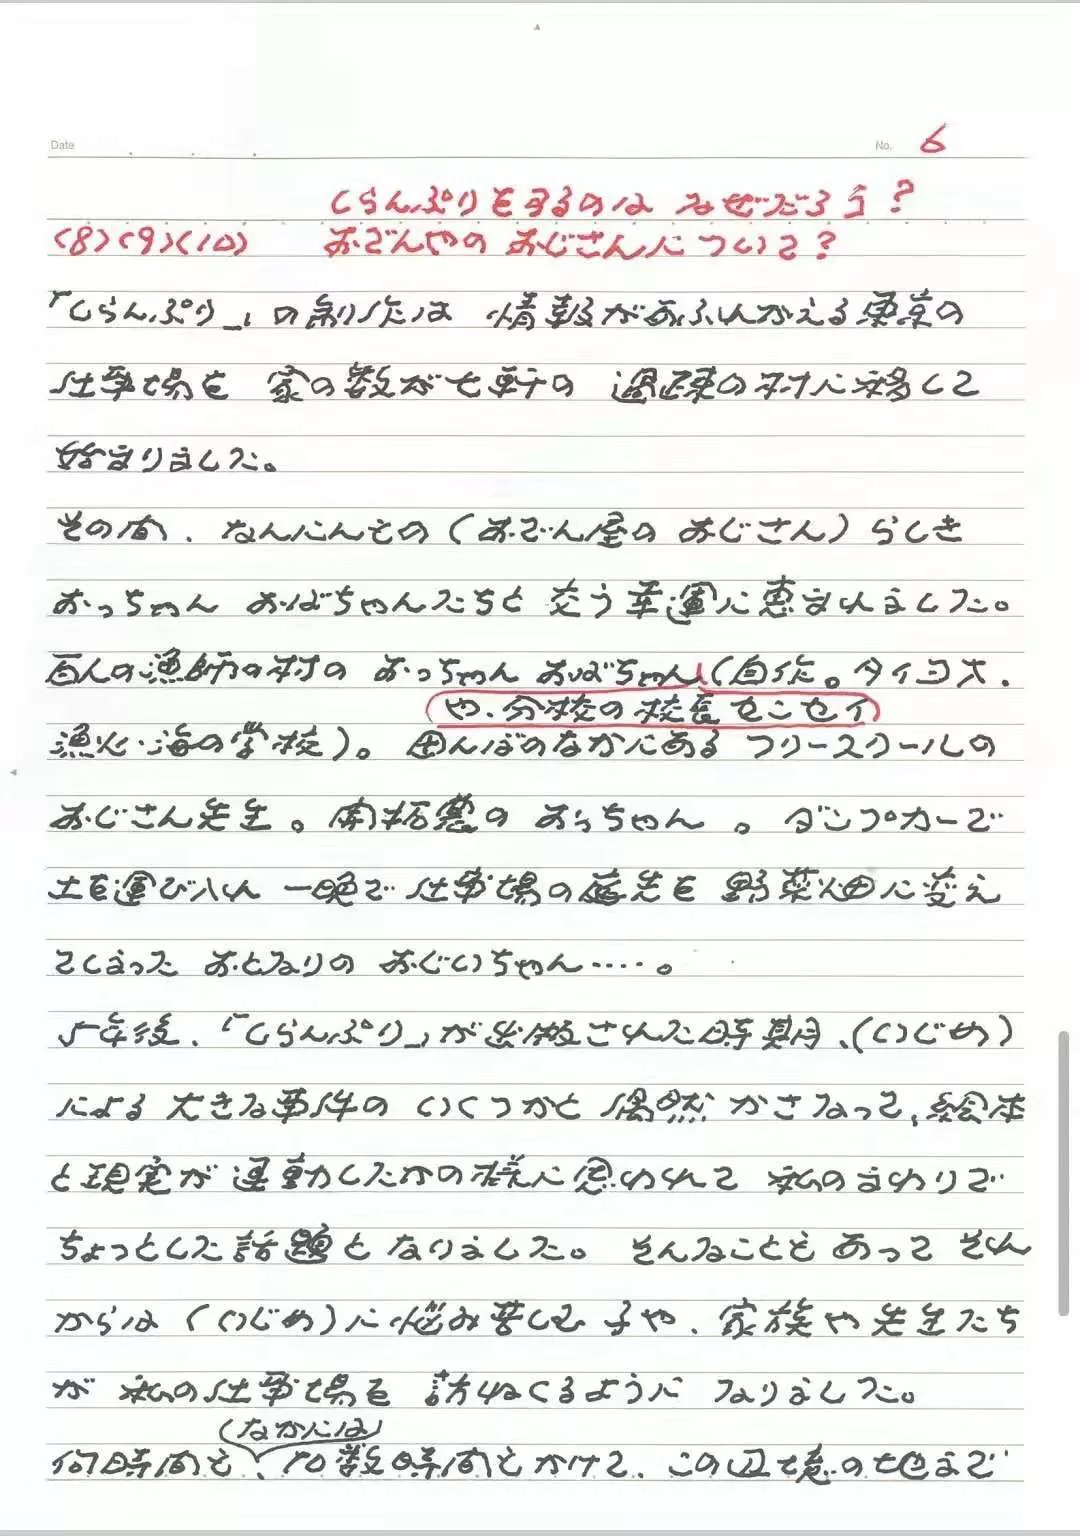 Date
No. 6
しらんぷりをするのは なぜだろう?
(8)(9)(10) おでんやの おじさんについて?
「しらんぷり」の制作は 情報があふれかえる東京の
仕事場を 家の数が七軒の 過疎の村に移して
始まりました。
その間、なんにんもの(おでん屋の おじさん)らしき
おっちゃん おばちゃんたちと 交う幸運に恵まれました。
百人の漁師の村の おっちゃん おばちゃん(自作。タイヨオ、
や、分校の校長センセイ
漁火・海の学校)。田んぼのなかにある フリースクールの
おじさん先生。開拓農の おっちゃん 。ダンプカーで
土を運び入れ 一晩で 仕事場の庭先を 野菜畑に変え
てしまった おとなりの おじいちゃん・・・・。
5年後、「しらんぷり」が出版された時期、(いじめ)
による 大きな事件の いくつかと 偶然 かさなって、絵本
と現実が 連動したかの様に思われて 私のまわりで
ちょっとした話題と なりました。そんなことも あって それ
からは (いじめ)に悩み苦しむ 子や、家族や先生たち
が 私の仕事場を 訪ねくるように なりました。
(なかには)
何時間も、10数時間もかけて、この辺境の地まで